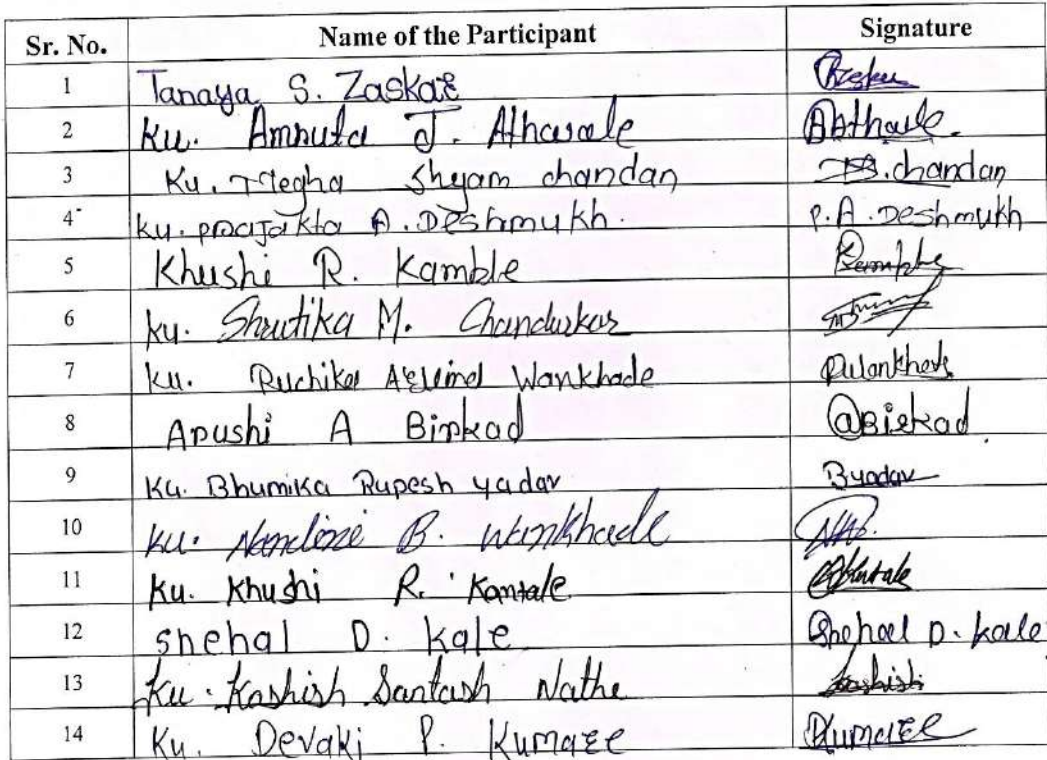 Sr. No. Name of the Participant Signature
1 Tanaya S. Zaskar
2 Ku. Amruta J. Athawale AAthawle.
3 Ku. Megha Shyam chandan chandan
4 Ku. prajakta A. Deshmukh. P. A. Deshmukh
5 Khushi R. Kamble Kamble
6 Ku. Shrutika M. Chandurkar
7 Ku. Ruchika Arvind Wankhade RWankhede
8 Arushi A Birkad @Birkad
9 Ku. Bhumika Rupesh yadav Byadav
10 Ku. Nandini B. Wankhade
11 Ku. Khushi R. Kamtale
12 Snehal D. Kale Snehal D. Kale
13 Ku. Kashish Santash Nathe Kashish
14 Ku. Devaki P. Kumare Kumare